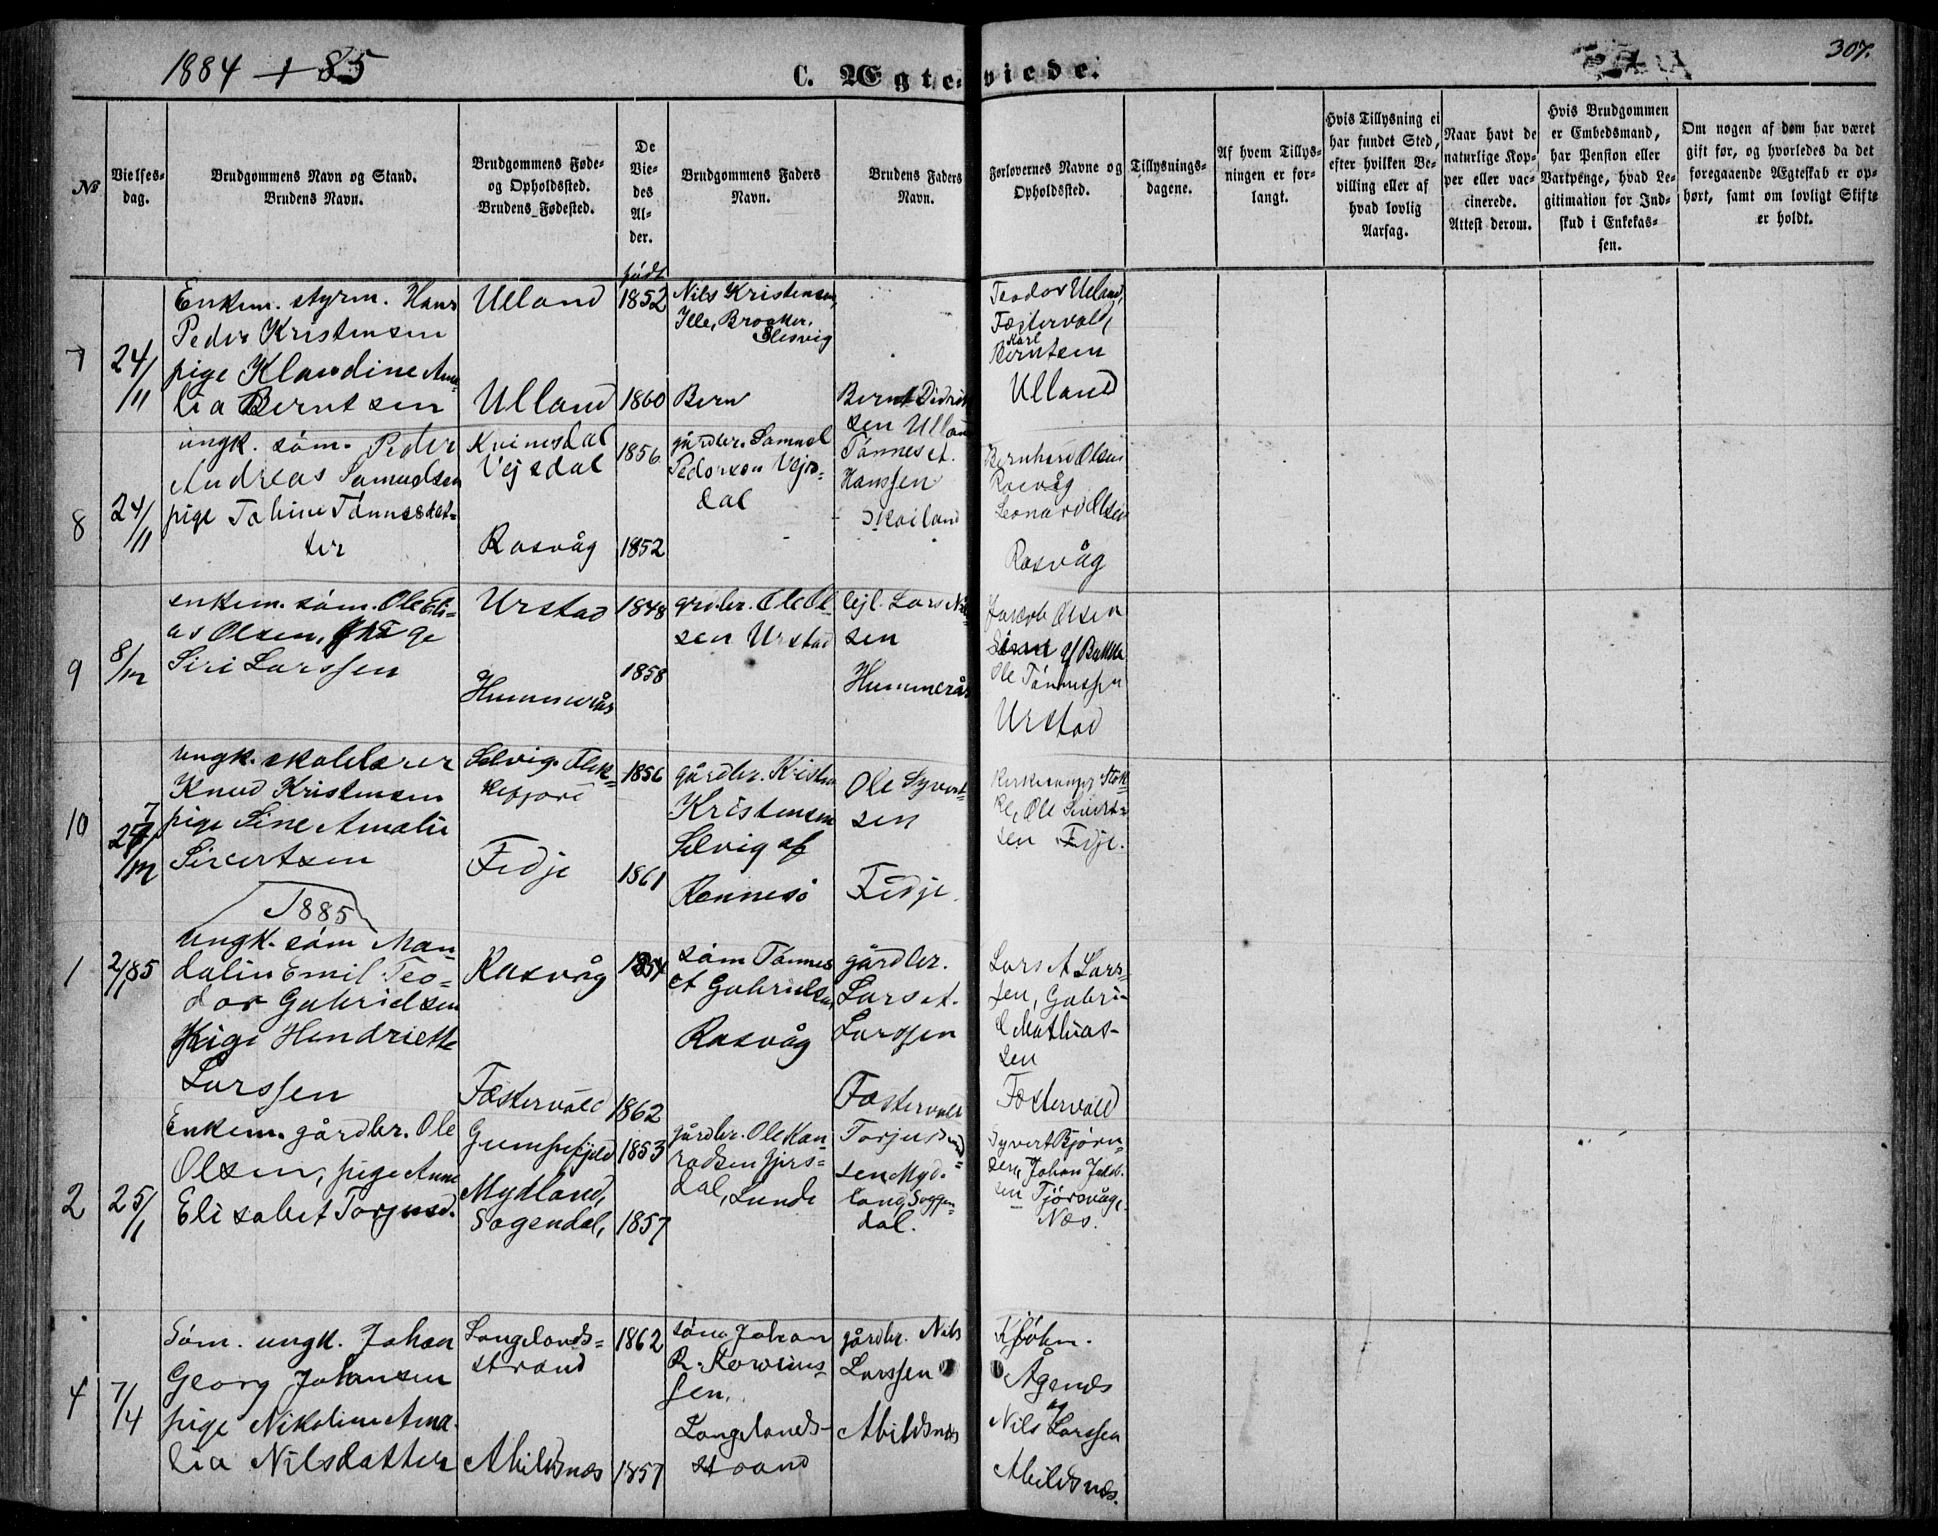 1884 + 85
C. Ægteviede.
307.
No
Vielses-
dag.
Brudgommens Navn og Stand.
Brudens Navn.
Brudgommens Føde-
og Opholdssted.
Brudens Fødested.
De
Vie-
des
Al-
der.
født
Brudgommens Faders
Navn.
Brudens Faders
Navn.
Forlovernes Navne og
Opholdssted.
Tillysnings-
dagene.
Af hvem Tillys-
ningen er for-
langt.
Hvis Tillysning ei
har fundet Sted,
efter hvilken Be-
villing eller af
hvad lovlig
Aarsag.
Naar havt de
naturlige Kop-
per eller vac-
cinerede.
Attest derom.
Hvis Brudgommen
er Embedsmand,
har Pension eller
Vartpenge, hvad Le-
gitimation for Ind-
skud i Enkekas-
sen.
Om nogen af dem har været
gift før, og hvorledes da det
foregaaende Ægteskab er op-
hørt, samt om lovligt Skifte
er holdt.
7
24/11
Enkem. styrm. Hans
Peder Kristensen
pige Klaudine Ama-
lia Berntsen
Ulland
Ulland
1852
1860
Nils Kristensen,
Ille, Broaker,
Slesvig
Bern
Bernt Didrik
sen Ulland
Teodor Ulland,
Fæstervold,
Karl
Berntsen
Ulland
8
24/11
ungk. søm. Peder
Andreas Samuelsen
pige Tobine Tønnesdat-
ter
Kvinesdal
Vejsdal
Rasvåg
1856
1852
gårdbr. Samuel
Pedersen Vejs-
dal
Tønnes A.
Hanssen
Skailand
Bernhard Olsen
Rasvåg
Leonard Olsen
Rasvåg
9
8/12
enkem. søm. Ole Eli-
as Olsen, ge
Siri Larssen
Urstad
Hummerås
1848
1858
grdbr. Ole Ol
sen Urstad
lejl. Lars Nil
sen
Hummerås
Jakob Olsen
af Bakke
Ole Tønnessen
Urstad
10
27/12
ungk. skolelærer
Knud Kristensen
pige Sine Amalie
Sivertsen
Selvig Flek-
kefjord
Fedje
1856
1861
gårdbr. Kristen
Kristensen
Selvig af
Rennesø
Ole Syvert-
sen
Fedje.
Kirkesanger Stok-
ke, Ole Sivert-
sen Fedje.
1885
1
2/1 85
Ungk. søm Man-
dalin Emil Teo-
dor Gabrielsen
Pige Hendriette
Larssen
Rasvåg
Fæstervold
1854
1862
søm Tønnes
A Gabrielsen,
Rasvåg
gårdbr.
Lars A.
Larssen
Fæstervold
Lars A Lars-
sen, Gabri-
el Mathias-
sen
Fæstervold
2
25/1
Enkem. gårdbr. Ole
Olsen, pige Anne
Elisabet Torjusd.
Gumpefjeld
Mydland,
Sogendal,
1853
1857
gårdbr. Ole Kan-
radsen Gjers-
dal, Lunde
Torjus
sen Myd-
land Soggen-
dal.
Syvert Bjørn-
sen, Johan Jakob-
sen Tjørsvåg.
Næs.
4
7/4
Søm. ungk. Johan
Georg Johansen
pige Nikoline Ama-
lia Nilsdatter
Langelands-
strand
Abildsnæs
1862
1857
søm Johan
R.
sen,
Langelands-
strand
gårdbr. Nils
Larssen
Abildsnæs
Agenæs
og
Nils Larssen
Abildsnæs.